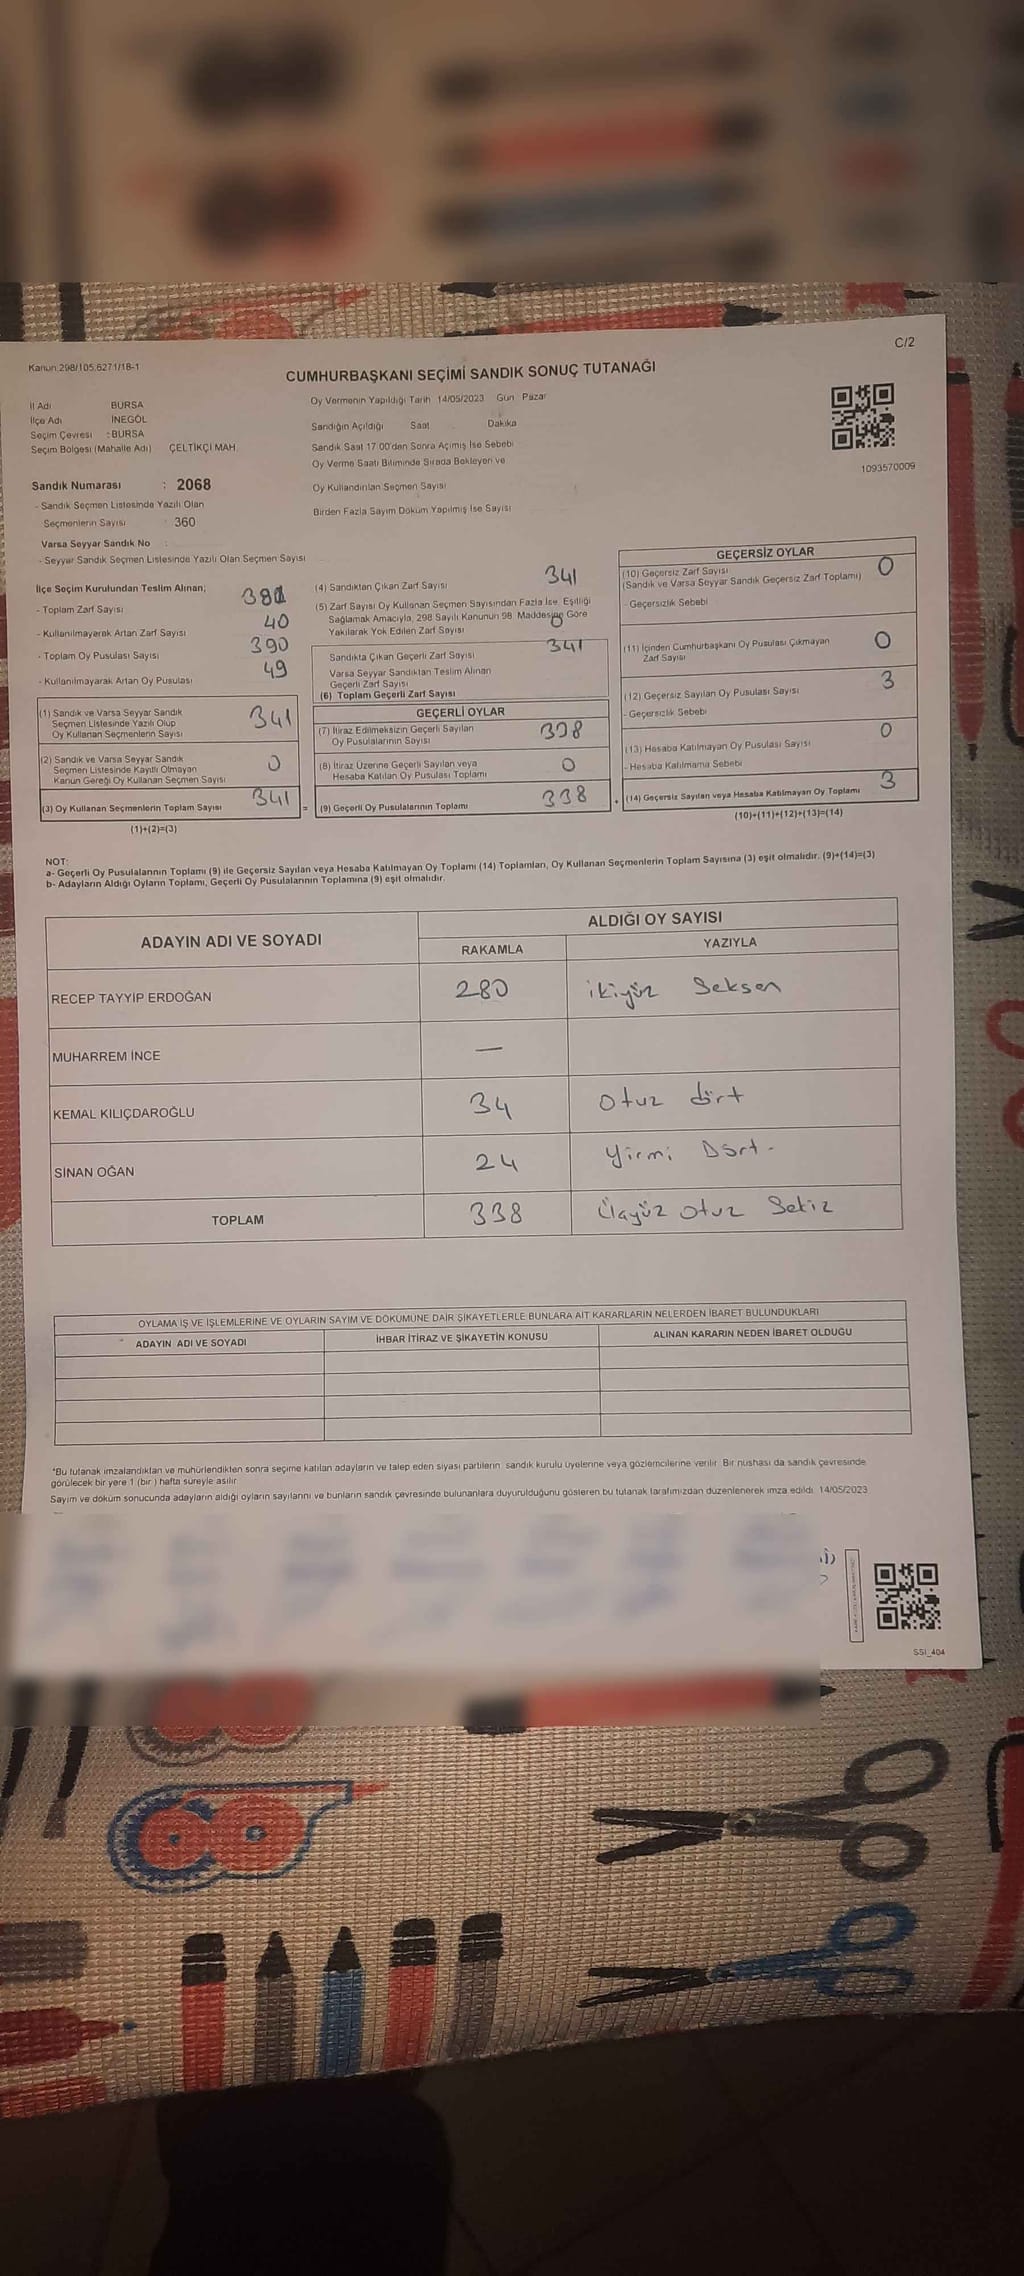 C/2
Kanun:298/105,6271/18-1
CUMHURBAŞKANI SEÇİMİ SANDIK SONUÇ TUTANAĞI
İl Adı BURSA
İlçe Adı İNEGÖL
Seçim Çevresi : BURSA
Seçim Bölgesi (Mahalle Adı) ÇELTİKÇİ MAH.
Sandık Numarası : 2068
- Sandık Seçmen Listesinde Yazılı Olan
Seçmenlerin Sayısı : 360
Varsa Seyyar Sandık No
- Seyyar Sandık Seçmen Listesinde Yazılı Olan Seçmen Sayısı
Oy Vermenin Yapıldığı Tarih 14/05/2023 Gün Pazar
Sandığın Açıldığı Saat Dakika
Sandık Saat 17:00'den Sonra Açımış İse Sebebi
Oy Verme Saati Bitiminde Sırada Bekleyen ve
Oy Kullandırılan Seçmen Sayısı
Birden Fazla Sayım Döküm Yapılmış İse Sayısı
1093570009
İlçe Seçim Kurulundan Teslim Alınan;
- Toplam Zarf Sayısı 381
- Kullanılmayarak Artan Zarf Sayısı 40
- Toplam Oy Pusulası Sayısı 390
- Kullanılmayarak Artan Oy Pusulası 49
(1) Sandık ve Varsa Seyyar Sandık
Seçmen Listesinde Yazılı Olup
Oy Kullanan Seçmenlerin Sayısı 341
(2) Sandık ve Varsa Seyyar Sandık
Seçmen Listesinde Kayıtlı Olmayan
Kanun Gereği Oy Kullanan Seçmen Sayısı 0
(3) Oy Kullanan Seçmenlerin Toplam Sayısı 341 =
(1)+(2)=(3)
(4) Sandıktan Çıkan Zarf Sayısı 341
(5) Zarf Sayısı Oy Kullanan Seçmen Sayısından Fazla İse, Eşitliği
Sağlamak Amacıyla, 298 Sayılı Kanunun 98. Maddesine Göre
Yakılarak Yok Edilen Zarf Sayısı 0
Sandıkta Çıkan Geçerli Zarf Sayısı 341
Varsa Seyyar Sandıktan Teslim Alınan
Geçerli Zarf Sayısı
(6) Toplam Geçerli Zarf Sayısı
GEÇERLİ OYLAR
(7) İtiraz Edilmeksizin Geçerli Sayılan
Oy Pusulalarının Sayısı 338
(8) İtiraz Üzerine Geçerli Sayılan veya
Hesaba Katılan Oy Pusulası Toplamı 0
(9) Geçerli Oy Pusulalarının Toplamı 338 +
GEÇERSİZ OYLAR
(10) Geçersiz Zarf Sayısı 0
(Sandık ve Varsa Seyyar Sandık Geçersiz Zarf Toplamı)
- Geçersizlik Sebebi
(11) İçinden Cumhurbaşkanı Oy Pusulası Çıkmayan
Zarf Sayısı 0
(12) Geçersiz Sayılan Oy Pusulası Sayısı 3
- Geçersizlik Sebebi
(13) Hesaba Katılmayan Oy Pusulası Sayısı 0
- Hesaba Katılmama Sebebi
(14) Geçersiz Sayılan veya Hesaba Katılmayan Oy Toplamı 3
(10)+(11)+(12)+(13)=(14)
NOT:
a- Geçerli Oy Pusulalarının Toplamı (9) ile Geçersiz Sayılan veya Hesaba Katılmayan Oy Toplamı (14) Toplamları, Oy Kullanan Seçmenlerin Toplam Sayısına (3) eşit olmalıdır. (9)+(14)=(3)
b- Adayların Aldığı Oyların Toplamı, Geçerli Oy Pusulalarının Toplamına (9) eşit olmalıdır.
ADAYIN ADI VE SOYADI ALDIĞI OY SAYISI
RAKAMLA YAZIYLA
RECEP TAYYİP ERDOĞAN 280 ikiyüz Seksen
MUHARREM İNCE —
KEMAL KILIÇDAROĞLU 34 Otuz dört
SİNAN OĞAN 24 Yirmi Dört -
TOPLAM 338 Üçyüz otuz Sekiz
OYLAMA İŞ VE İŞLEMLERİNE VE OYLARIN SAYIM VE DÖKÜMÜNE DAİR ŞİKAYETLERLE BUNLARA AİT KARARLARIN NELERDEN İBARET BULUNDUKLARI
ADAYIN ADI VE SOYADI İHBAR İTİRAZ VE ŞİKAYETİN KONUSU ALINAN KARARIN NEDEN İBARET OLDUĞU
*Bu tutanak imzalandıktan ve mühürlendikten sonra seçime katılan adayların ve talep eden siyasi partilerin sandık kurulu üyelerine veya gözlemcilerine verilir. Bir nüshası da sandık çevresinde
görülecek bir yere 1 (bir ) hafta süreyle asılır.
Sayım ve döküm sonucunda adayların aldığı oyların sayılarını ve bunların sandık çevresinde bulunanlara duyurulduğunu gösteren bu tutanak tarafımızdan düzenlenerek imza edildi. 14/05/2023
SSI_404